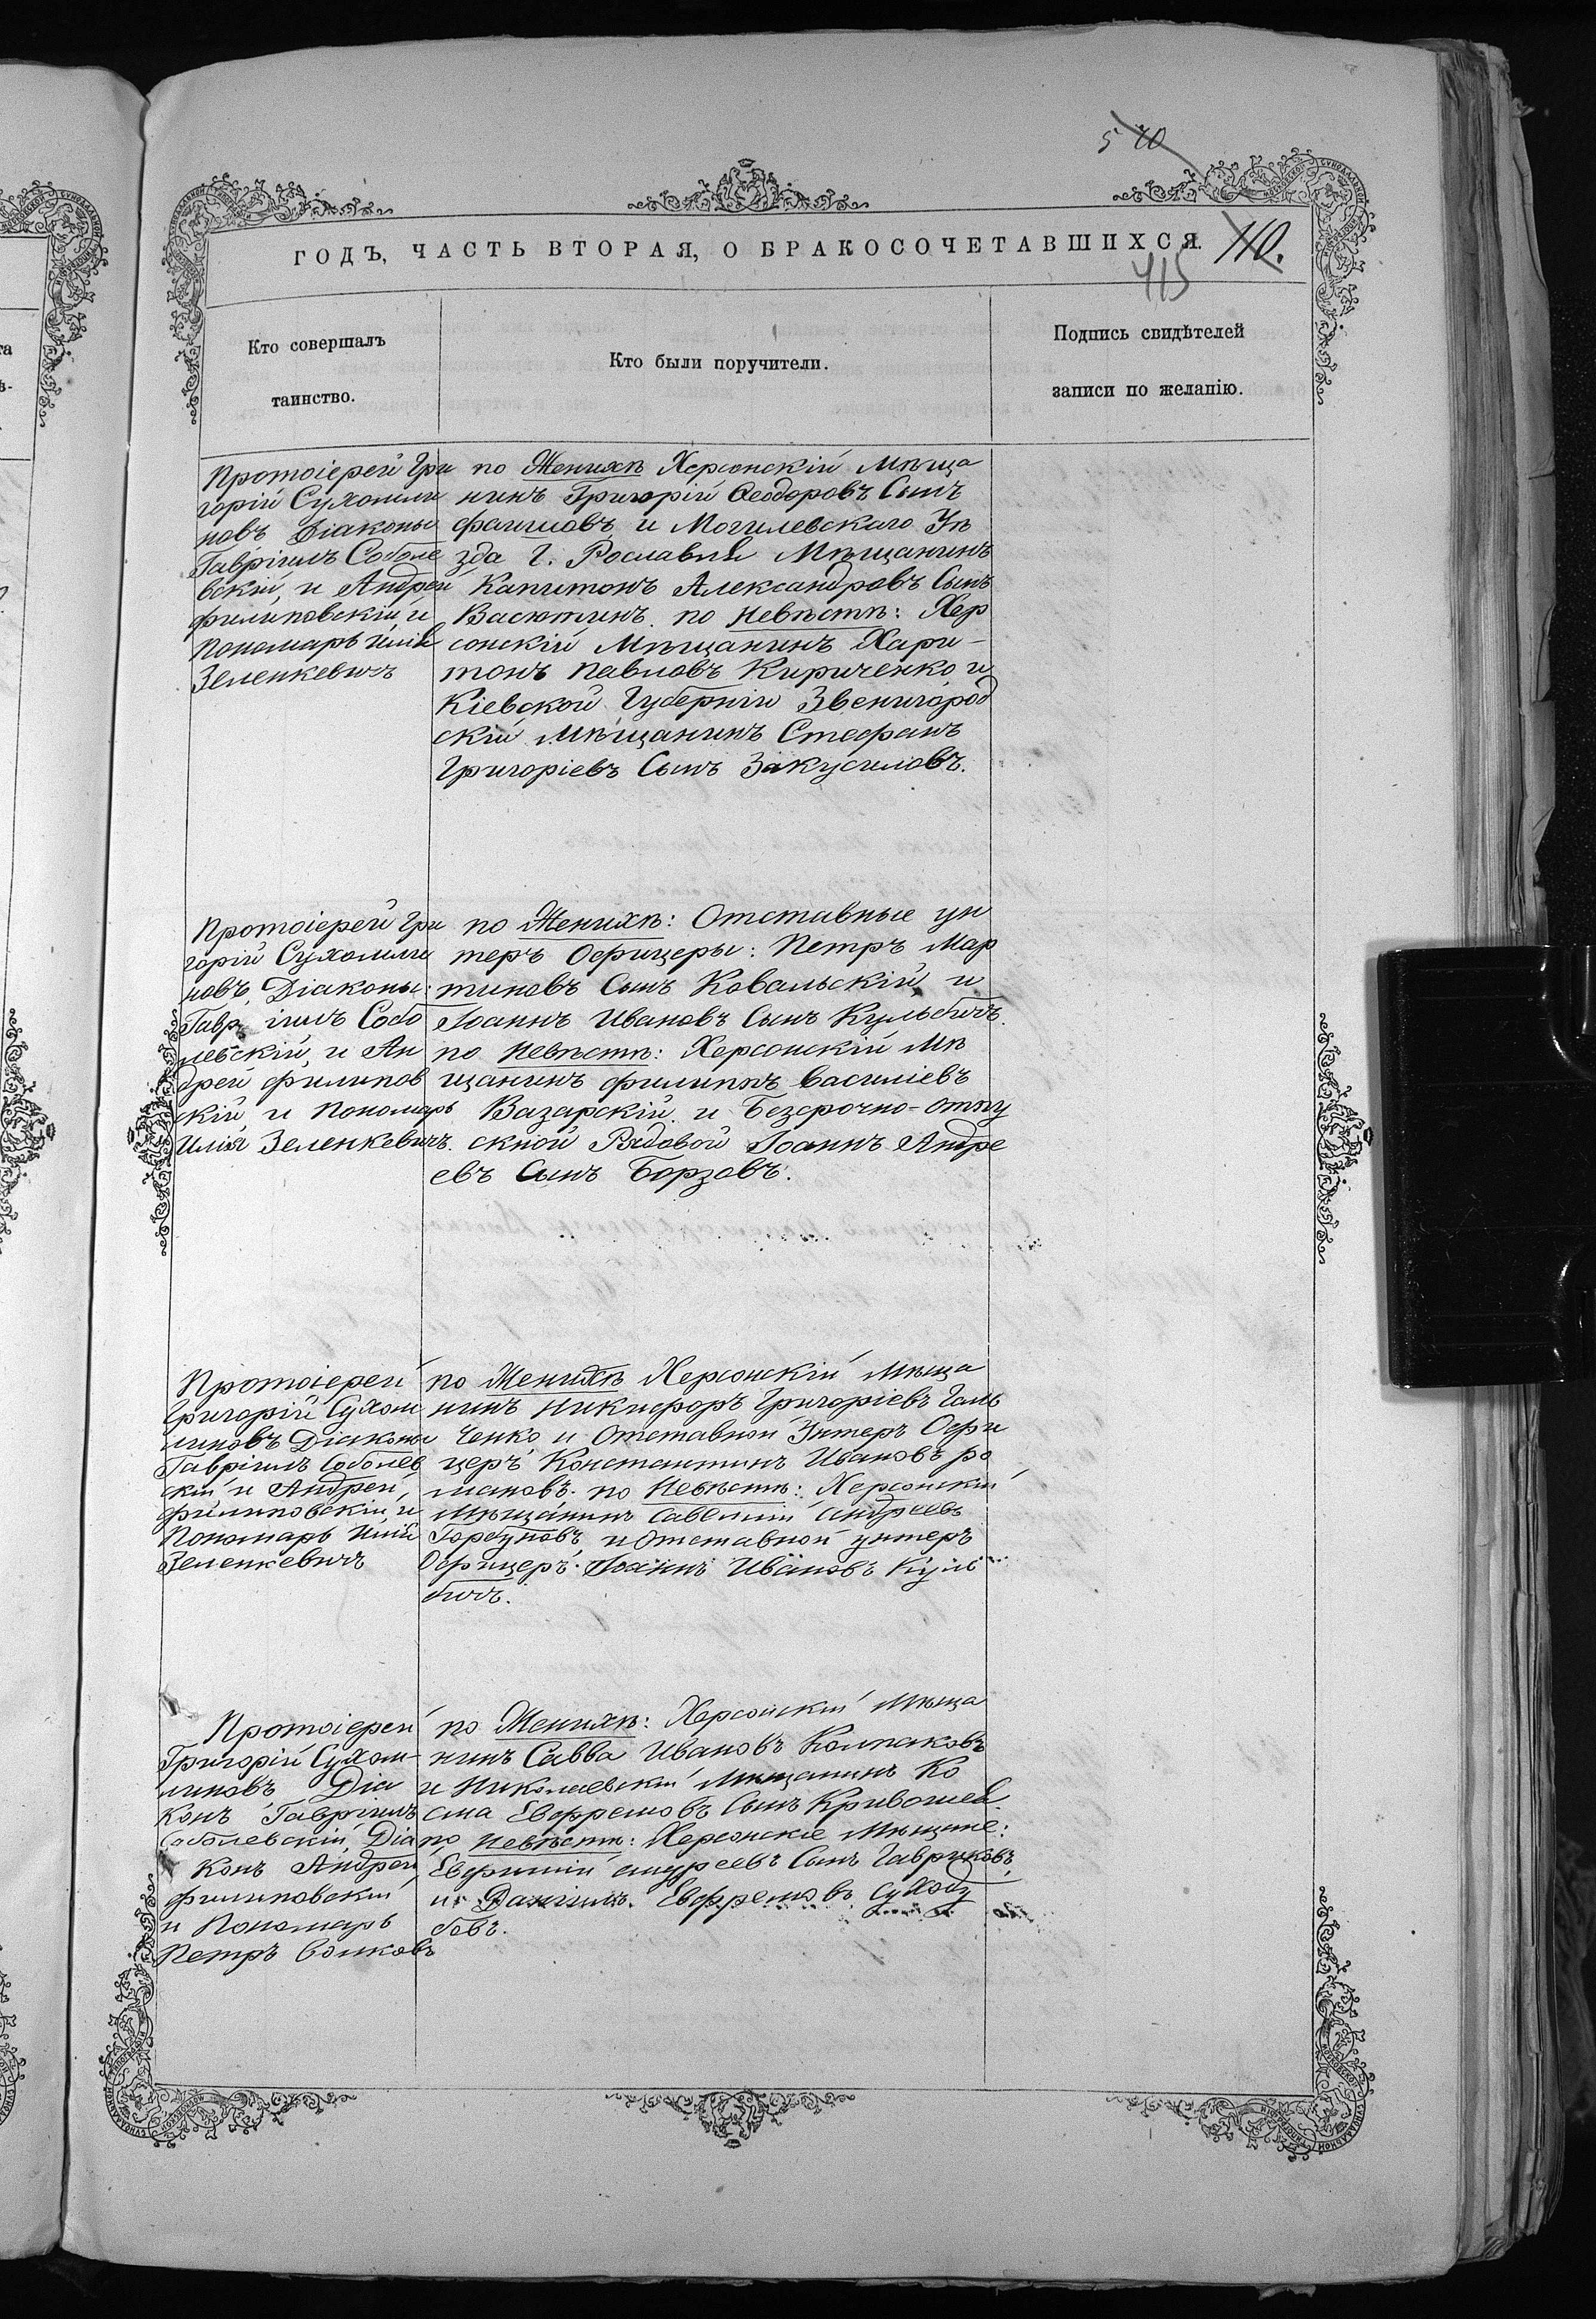 5 40
ГОДЪ, ЧАСТЬ ВТОРАЯ, О БРАКОСОЧЕТАВШИХСЯ. 110.
415
Кто совершалъ
таинство.
Кто были поручители.
Подпись свидѣтелей
записи по желанію.
Протоіерей Гри
горій Сухомли
новъ Діаконы
Гавріилъ Соболе
вскій, и Андрей
Филиповскій, и
Пономарь Илія
Зеленкевичъ
по Женихѣ Херсонскій Мѣща
нинъ Григорій Ѳеодоровъ Сынъ
и Могилевскаго Уѣ
зда Г. Рославля Мѣщанинъ
Капитонъ Александровъ Сынъ
Васютинъ. по Невѣстѣ: Хер
сонскій Мѣщанинъ Хари-
тонъ Павловъ Кириченко и
Кіевской Губерніи Звенигород
скій Мѣщанинъ Стефанъ
Григоріевъ Сынъ Закусиловъ.
Протоіерей Гри
горій Сухомли
новъ, Діаконы:
Гавріилъ Собо
левскій, и Ан
дрей Филипов
скій и Пономарь
Илія Зеленкевичъ.
по Женихѣ: Отставные ун
теръ Офицеры: Петръ Мар
тиновъ Сынъ Ковальскій и
Іоаннъ Ивановъ Сынъ Кульбичъ.
по Невѣстѣ: Херсонскій Мѣ
щанинъ Филиппъ Василіевъ
Вазарскій и Безсрочно-отпу
скной Рядовой Іоаннъ Андре
евъ Сынъ Борзовъ.
Протоіерей
Григорій Сухом
линовъ Діаконы
Гавріилъ Соболев
скій и Андрей
Филиповскій, и
Пономарь Илія
Зеленкевичъ
по Женихѣ Херсонскій Мѣща
нинъ Никифоръ Григоріевъ Галь
ченко и Отставной Унтеръ Офи
церъ Константинъ Ивановъ Ро
мановъ. по Невѣстѣ: Херсонскій
Мѣщанинъ Савелій Андреевъ
Горбуновъ и Отставной унтеръ
Офицеръ Іоаннъ Ивановъ Куль
бичъ.
Протоіерей
Григорій Сухом-
линовъ Діа
конъ Гавріилъ
Соболевскій, Діа
конъ Андрей
Филиповскій
и Пономарь
Петръ Волковъ
по Женихѣ: Херсонскій Мѣща
нинъ Савва Ивановъ Колпаковъ
и Николаевскій Мѣщанинъ Ко
сма Евфремовъ Сынъ
по Невѣстѣ: Херсонскіе Мѣщане:
Евфимій Андреевъ Сынъ Гавриковъ,
и Даніилъ Евфремовъ Суходу
бовъ.